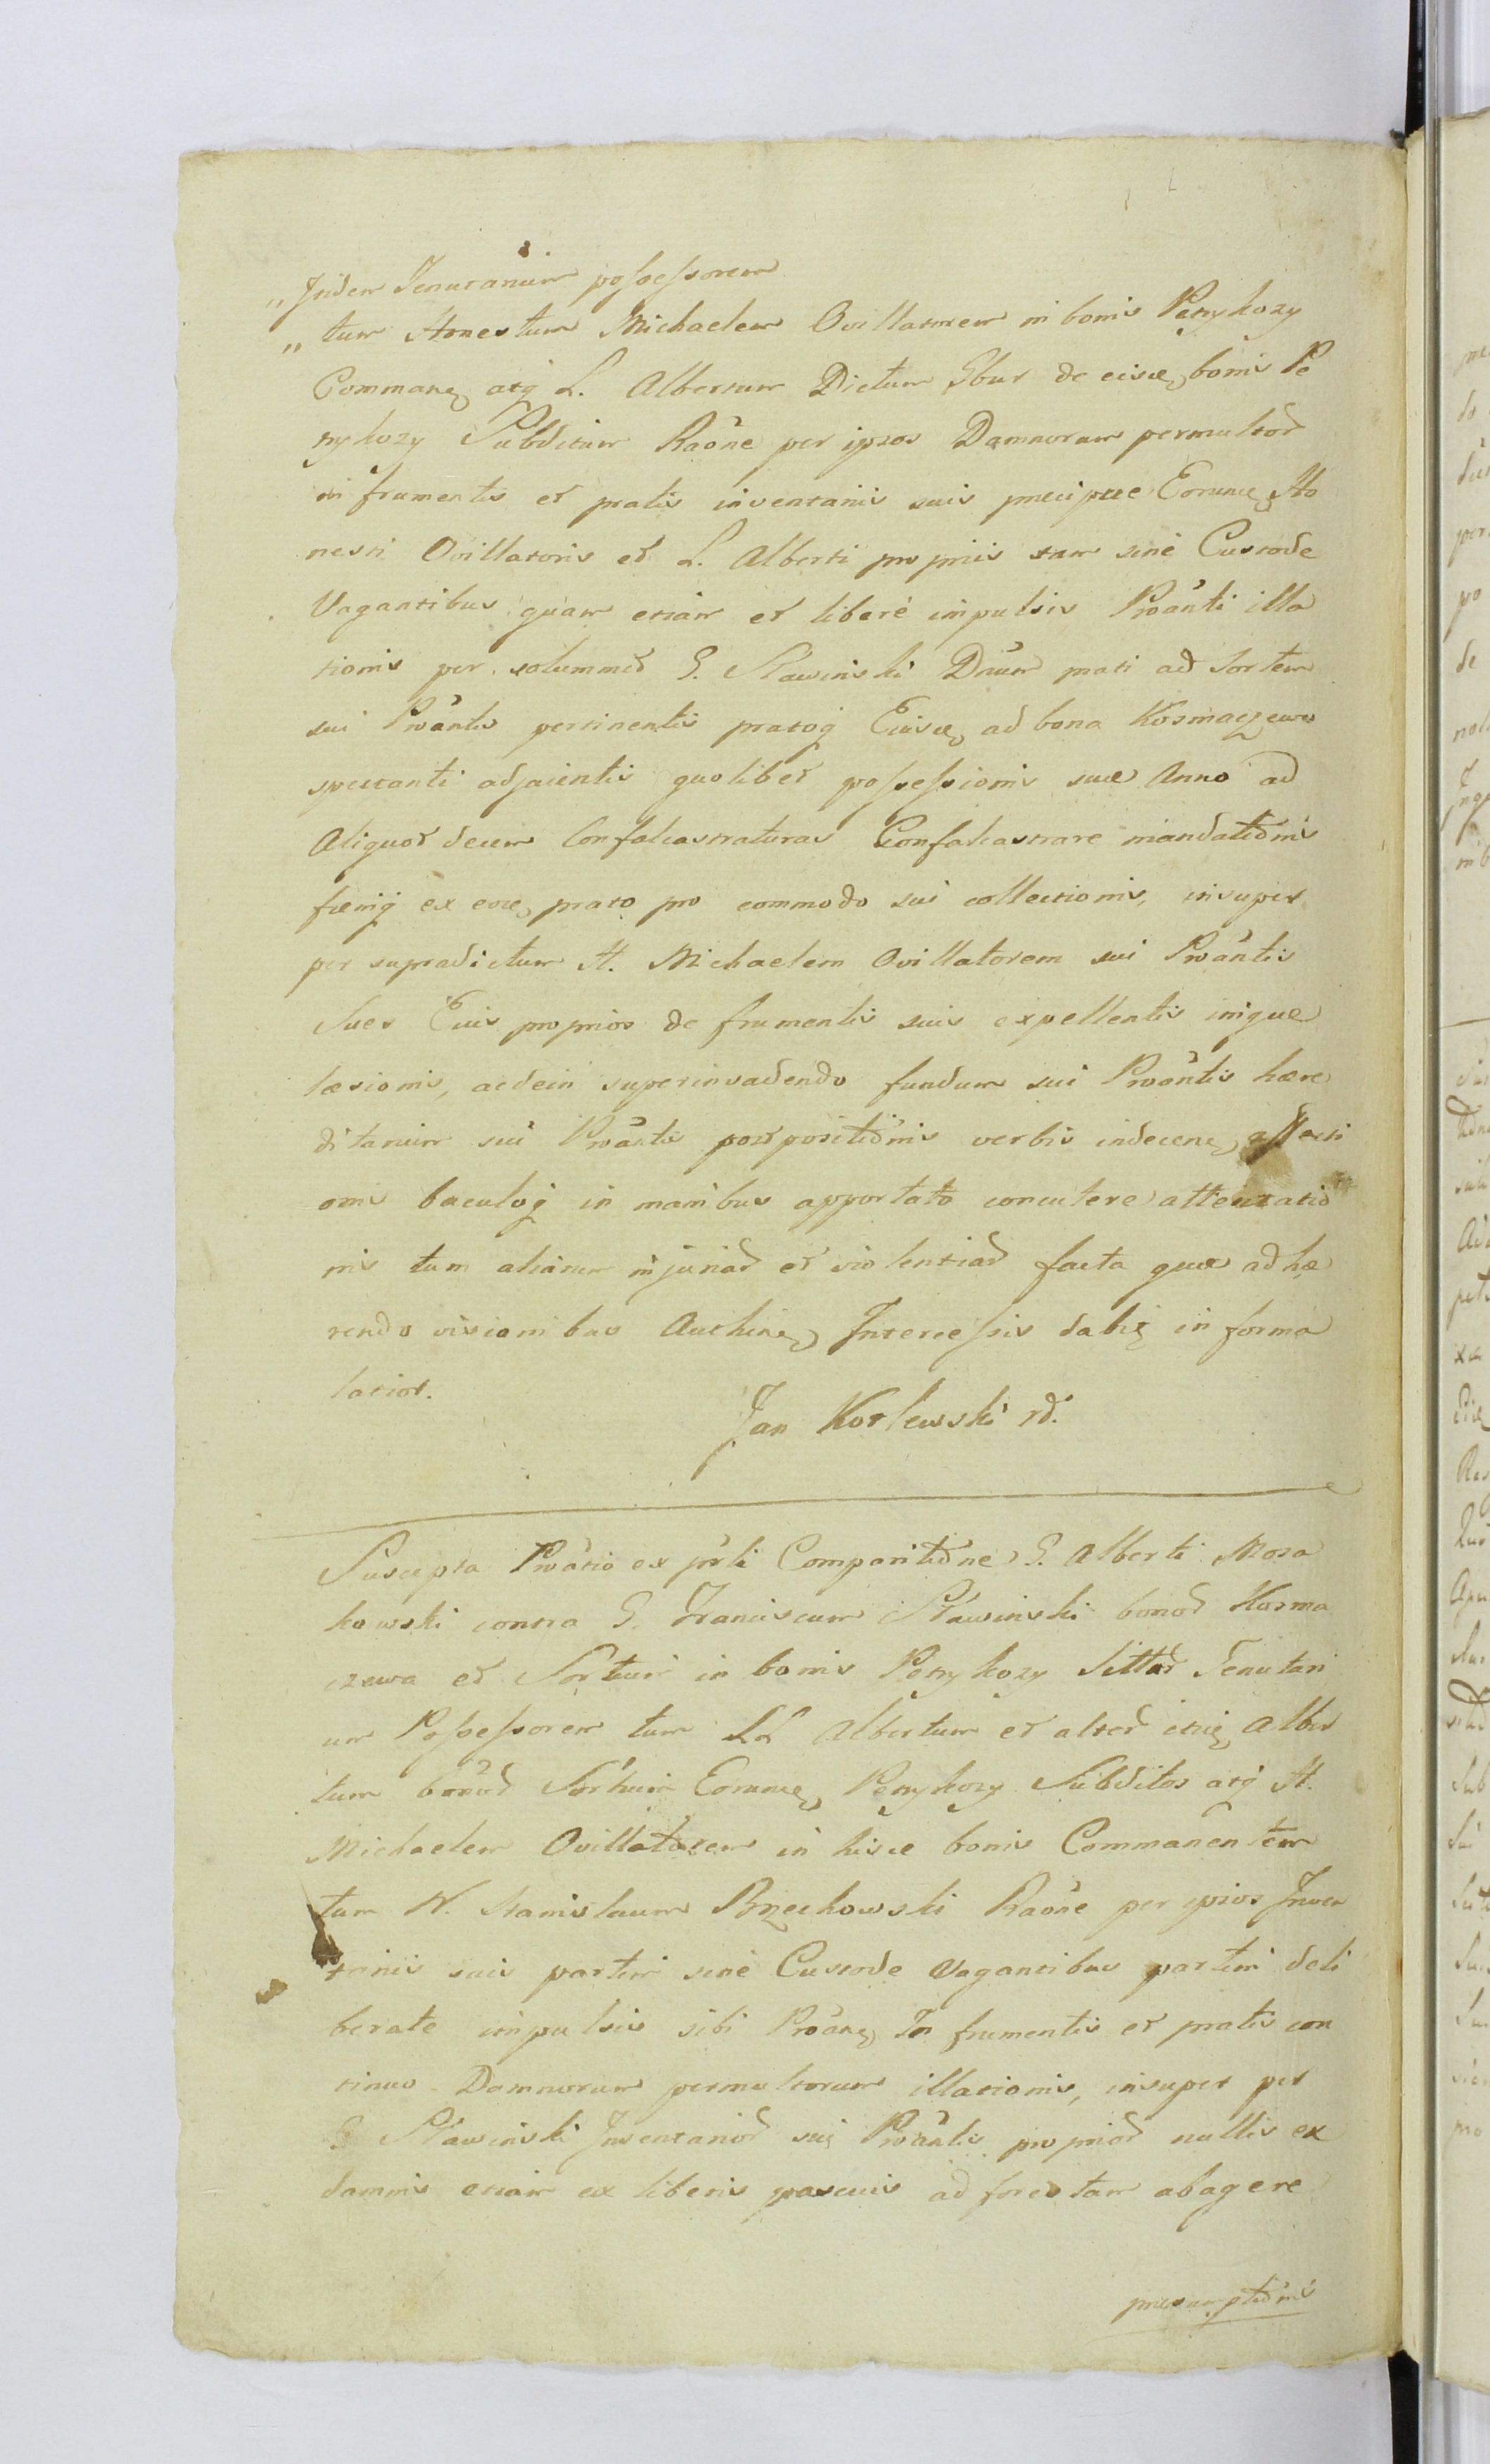 „Ibidem Tenutarium possessorem
„tum Honestum Michaelem Ovillatorem in bonis Petrykozy
Commanen, atq L. Albertum Dictum Gbur de eisce, bonis Pe
trykozy Subditum Raöne per ipsos Damnorum permultor
in frumentis et pratis inventariis suis precipue Eorunce, Ho
nesti Ovillatoris et L. Alberti propriis tum sine Custode
Vagantibus quam etiam et liberé impulsis Proanti illa
tionis per solummod G. Sławinski Dnum prati ad Sortem
sui Proantis pertinentis pratoq Eiusce, ad bona Kosmaczewo
spectanti adjacentis quolibet possessionis suæ Anno ad
Aliquot decem Confalcastraturas Confalcastrare mandationis
fæniq ex eoce, prato pro commodo sui collectionis, insuper
per supradictum H. Michaelem Ovillatorem sui Proantis
Sues Eius proprios de frumentis suis expellentis inique
læsionis, acdein superinvadendo fundum sui Proantis hære
ditarium sui Proantis postpositionis verbis indecen, affecti
onis baculoq in manibus apportato concutere attentatio
nis tum aliarum injuriar et violentiar facta quæ adhæ
rendo visionibus Authen, Intercessis dabit in forma
latior.
Jan Kotlewski rd.
Suscepta Proatio ex prli Comparitione G. Alberti Mosa
kowski contra G. Franciscum Sławinski bonor Kosma
czewa et Sortium in bonis Petrykozy Sittar Tenutari
um Possessorem tum LL Albertum et alter itid, Alber
tum bonor Sortium Eorunce, Petrykozy Subditos atq H.
Michaelem Ovillatorem in hisce bonis Commanentem
tum N. Stanislaum Brzechowski Raöne per ipsos Inven
tariis suis partim sine Custode Vagantibus partim deli
berate impulsis sibi Proan, In frumentis et pratis con
tinuo Damnorum permultorum illationis, insuper per
G Sławinski Inventarior sui Proantis proprior nullis ex
damnis etiam ex liberis pascuis ad forestam abagere
præsumptionis